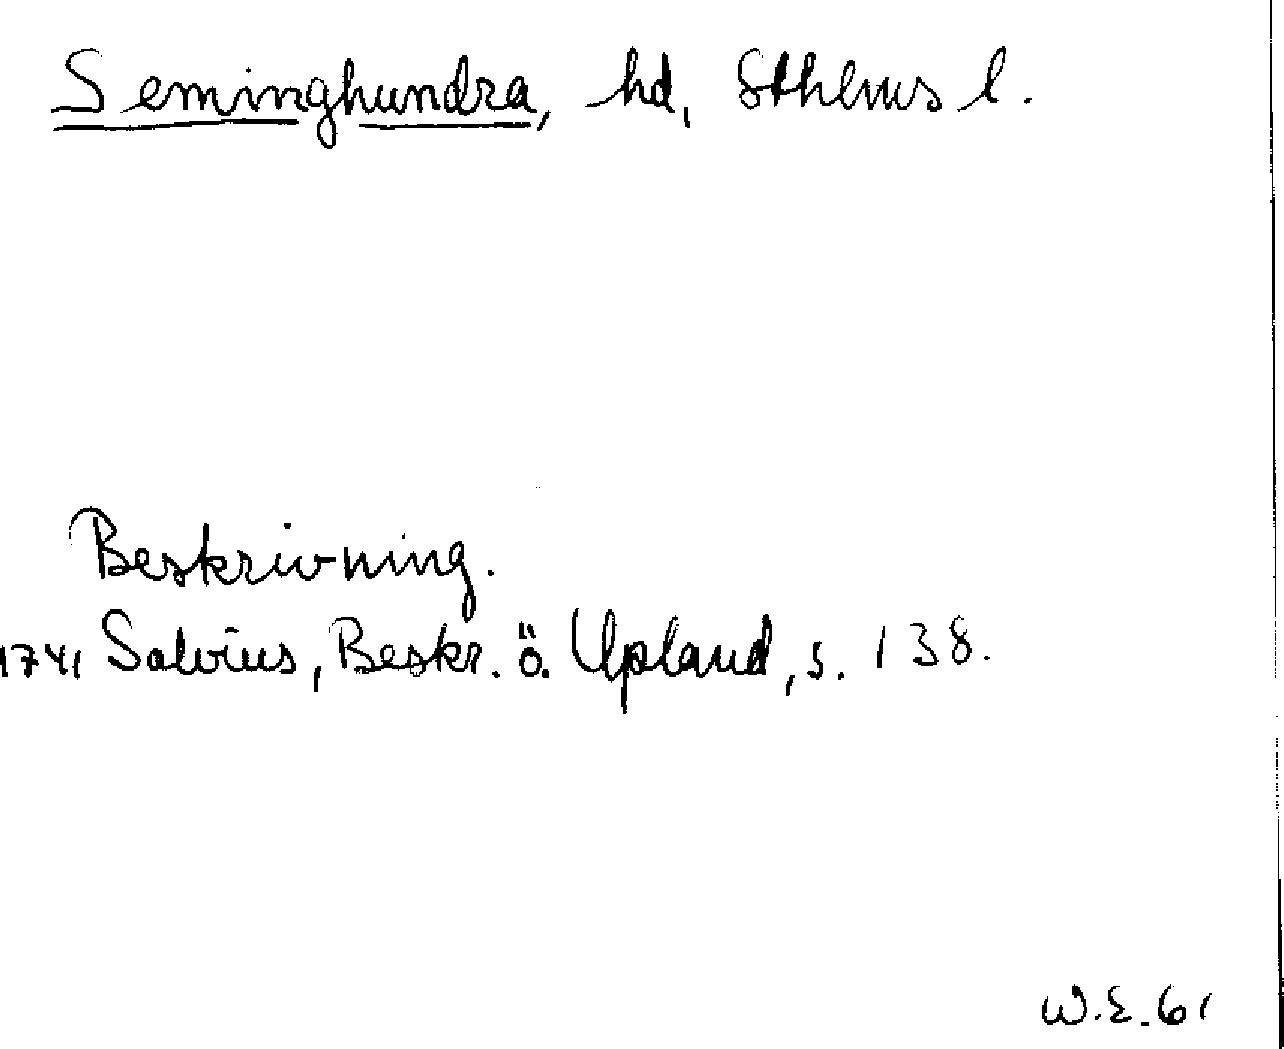 Seminghundra, hd, Sthlms l.
Beskrivning.
1741 Salvius, Beskr. ö. Upland, s. 138.
W.E. 61